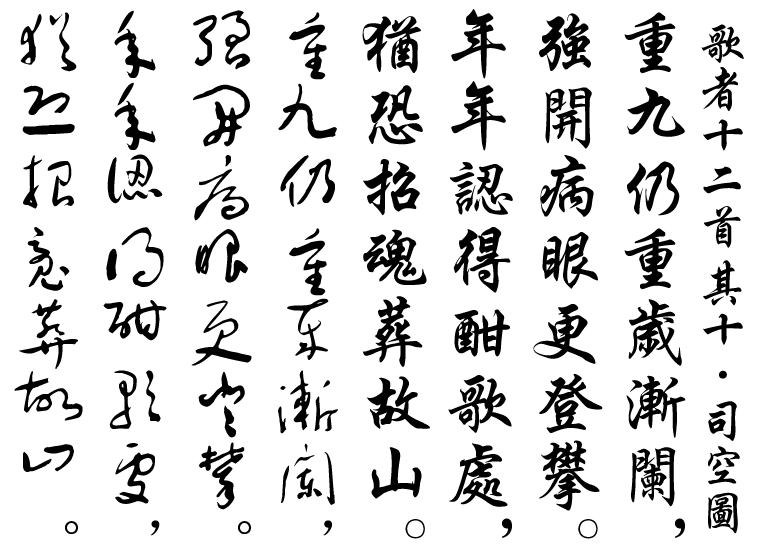 歌者十二首其十・司空圖
重九仍重歲漸闌，
強開病眼更登攀。
年年認得酣歌處，
猶恐招魂葬故山。
重九仍重歲漸闌，
強開病眼更登攀。
年年認得酣歌處，
猶恐招魂葬故山。